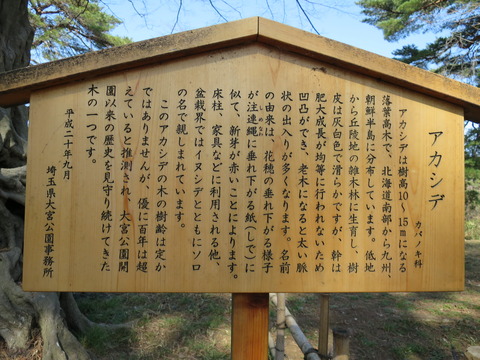 アカシデ
カバノキ科
アカシデは樹高10～15mになる
落葉高木で、北海道南部から九州、
朝鮮半島に分布しています。低地
から丘陵地の雑木林に生育し、樹
皮は灰白色で滑らかですが、幹は
肥大成長が均等に行われないため
凹凸ができ、老木になると太い脈
状の出入りが多くなります。名前
の由来は、花穂の垂れ下がる様子
が注連縄に垂れ下がる紙(しで)に
似て、新芽が赤いことによります。
床柱、家具などに利用される他、
盆栽界ではイヌシデとともにソロ
の名で親しまれています。
このアカシデの木の樹齢は定か
ではありませんが、優に百年は超
えていると推測され、大宮公園開
園以来の歴史を見守り続けてきた
木の一つです。
平成二十年九月
埼玉県大宮公園事務所